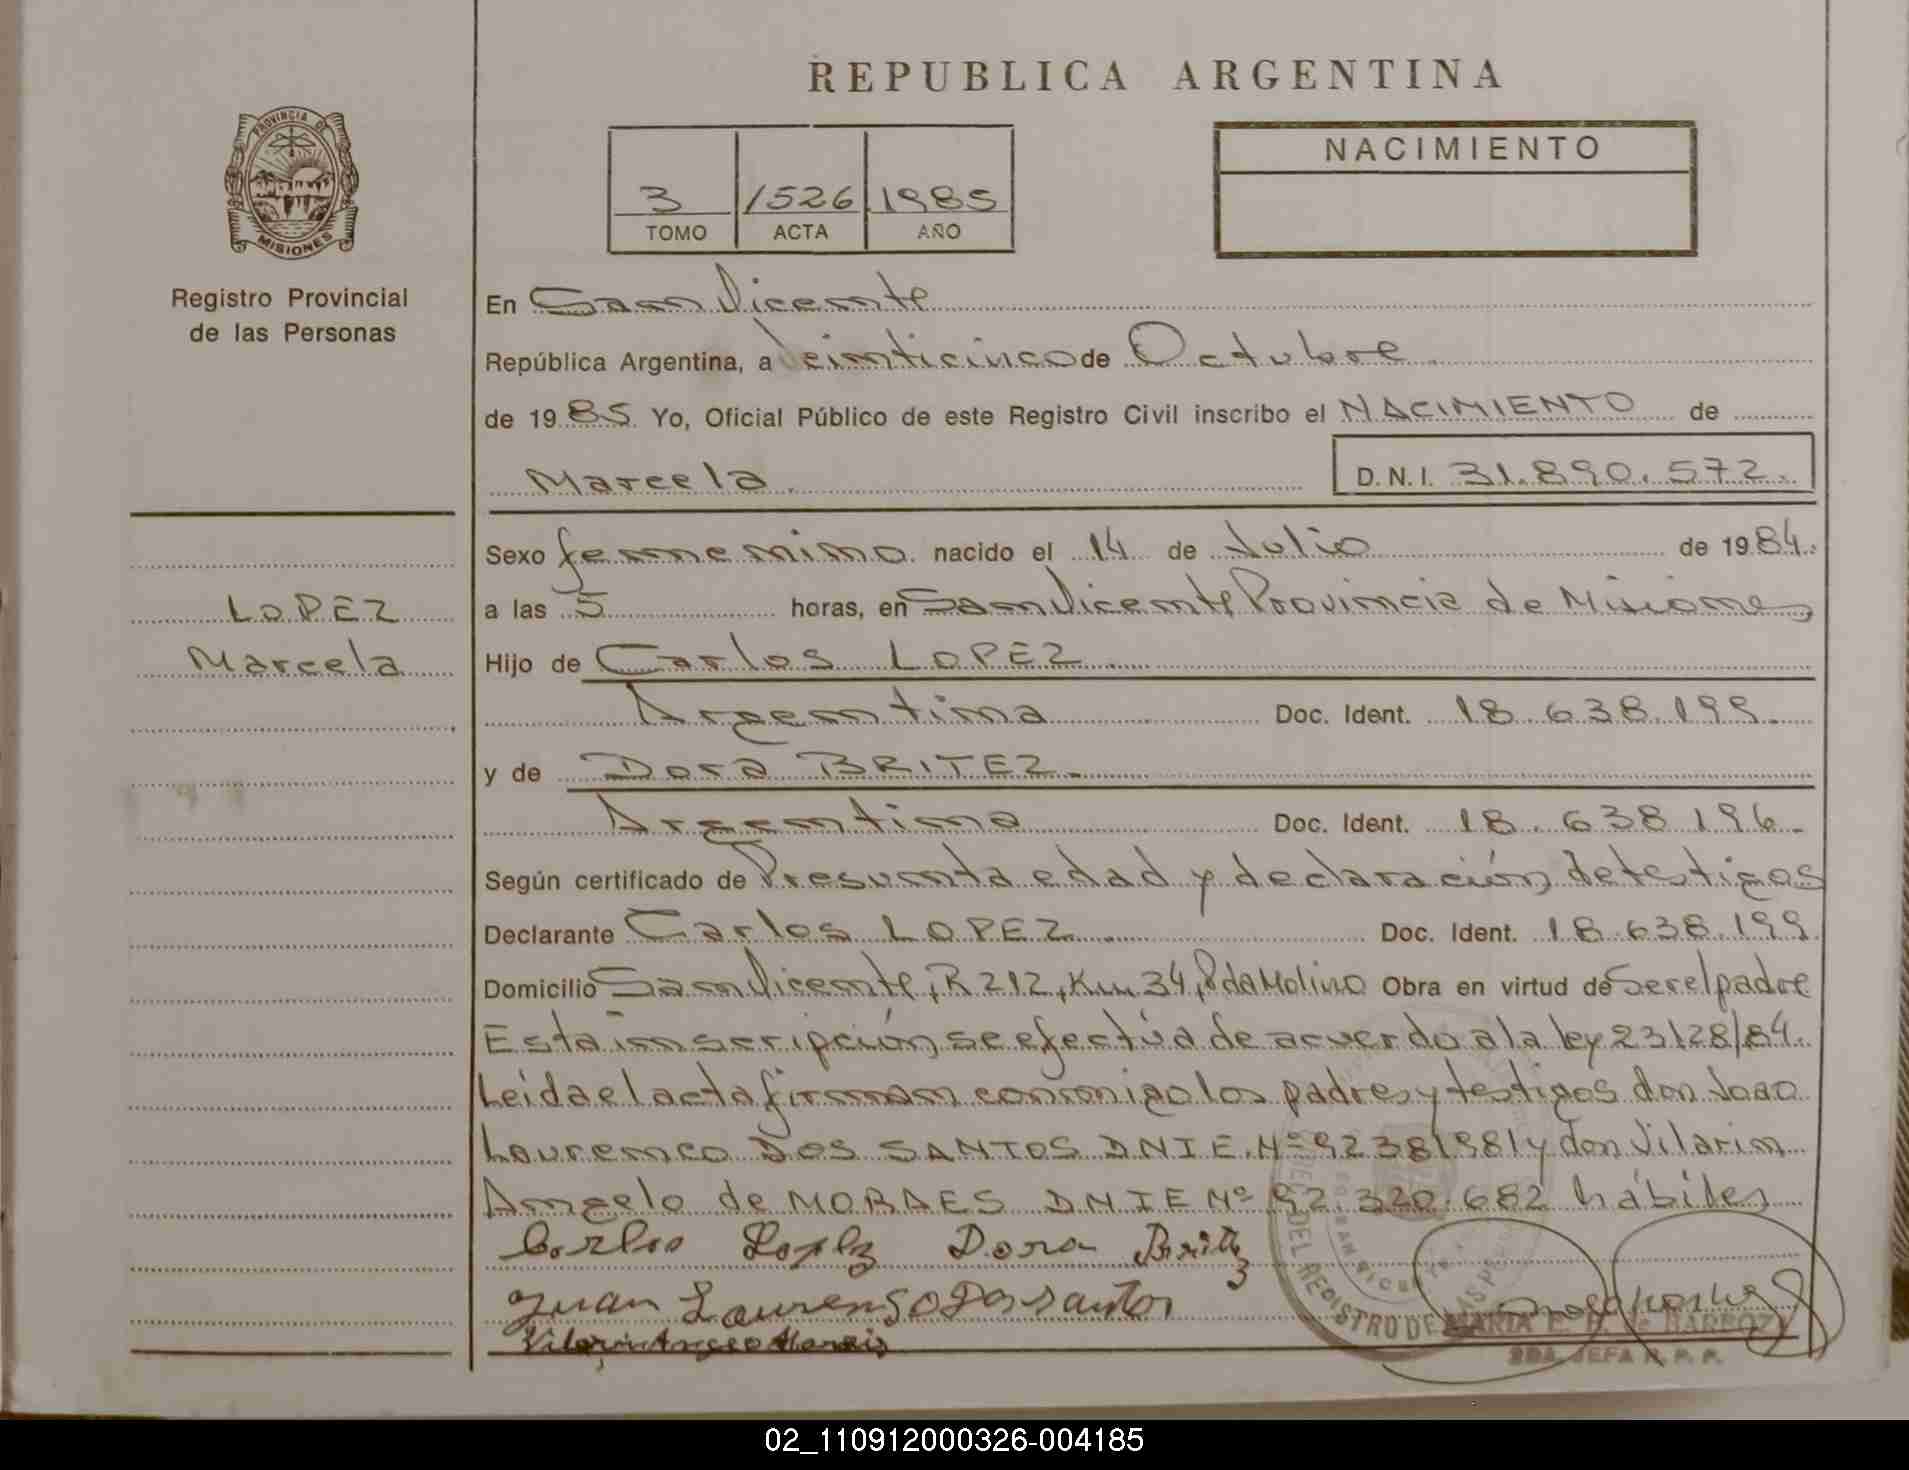 REPUBLICA ARGENTINA
PROVINCIA DE
MISIONES
Registro Provincial
de las Personas
3 1526 1985
TOMO ACTA AÑO
NACIMIENTO
En San Vicente
República Argentina, a Veinticinco de Octubre
de 1985 Yo, Oficial Público de este Registro Civil inscribo el NACIMIENTO de
Marcela D.N.I. 31.890.572.
LOPEZ
Marcela
Sexo femenino nacido el 14 de Julio de 1984.
a las 5 horas, en San Vicente Provincia de Misiones
Hijo de Carlos LOPEZ
Argentina Doc. Ident. 18.638.199.
y de Dora BRITEZ.
Argentina Doc. Ident. 18.638196.
Según certificado de Presunta edad y declaración de testigos
Declarante Carlos LOPEZ Doc. Ident. 18.638.199
Domicilio San Vicente, R 212, Km 34, Pda Molino Obra en virtud de Ser el padre
Esta inscripción se efectúa de acuerdo a la ley 23128/84.
Leída el acta firman conmigo los padres y testigos don Joao
Lourenco DOS SANTOS D N I E. Nº 92381981 y don Vilarin
Angelo de MORAES D N I E Nº 92.320.682 hábiles
Carlos Lopez Dora Britez
Juan Laurenso Dos santos
Vilarin Angeo Morais
DEL REGISTRO DE LAS P
MARIA E. de BARBOZA
2DA. JEFA R. P. P.
02_110912000326-004185